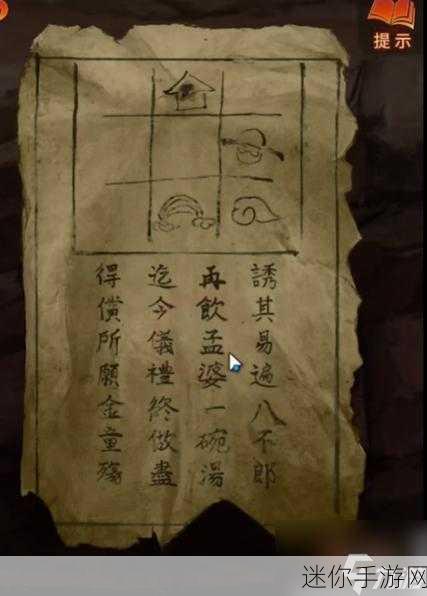 提示
誘其易遍八不郎
再飲孟婆一碗湯
迄今儀禮終做盡
得償所願金童殤
迷你手游网